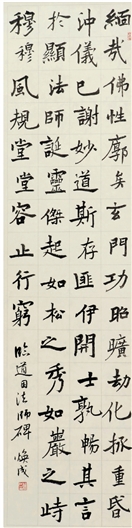 緬哉佛性廓矣玄門功昭曠劫化拯重昏
沖儀已謝妙道斯存匪伊開士孰暢其言
於顯法師誕靈傑起如松之秀如巖之峙
穆穆風規堂堂容止行窮
臨道因法師碑 煥成